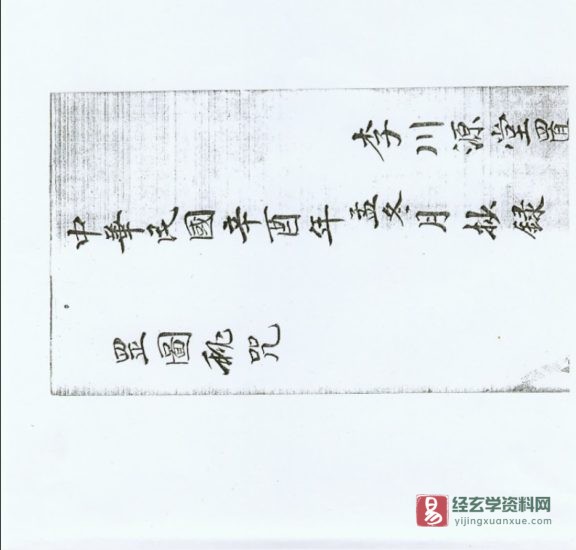 李川源堂置
中華民國辛酉年孟冬月抄録
罡圖秘咒
易
经玄学资料网
yijingxuanxue.com